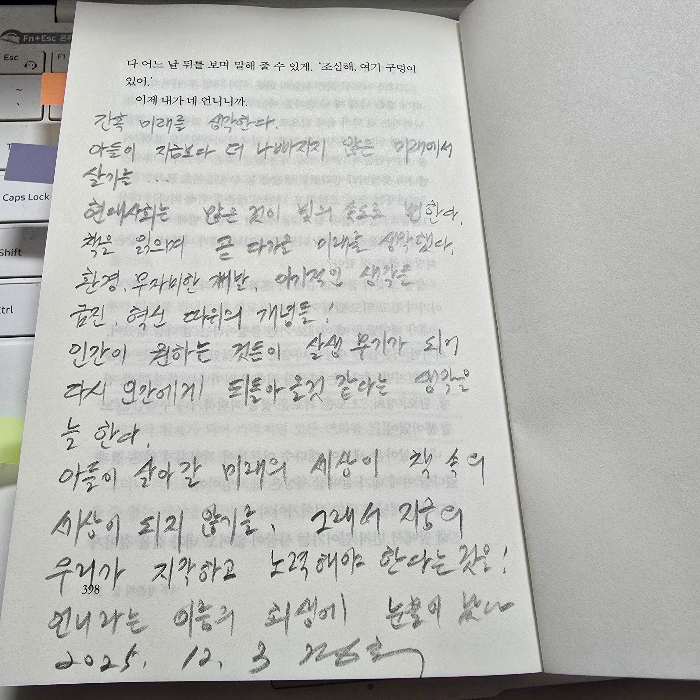 Fn+Esc
Esc
F1
Caps Lock
Shift
trl
다 어느 날 뒤를 보며 말해 줄 수 있게. ‘조심해, 여기 구덩이
있어.’
이제 내가 네 언니니까.
간혹 미래를 생각한다.
아들이 지금보다 더 나빠지지 않은 미래에서
살기를 ...
현대사회는 많은 것이 빛의 속도로 변한다.
책을 읽으며 곧 다가올 미래를 생각했다.
환경, 무자비한 개발, 이기적인 생각들
급진, 혁신 따위의 개념들!
인간이 원하는 것들이 살생 무기가 되어
다시 인간에게 되돌아 올것 같다는 생각을
늘 한다.
아들이 살아갈 미래의 세상이 책 속의
세상이 되지 않기를, 그래서 지금의
우리가 지각하고 노력해야 한다는 것을!
398
언니라는 이름의 희생에 눈물이 났다
2025. 12. 3